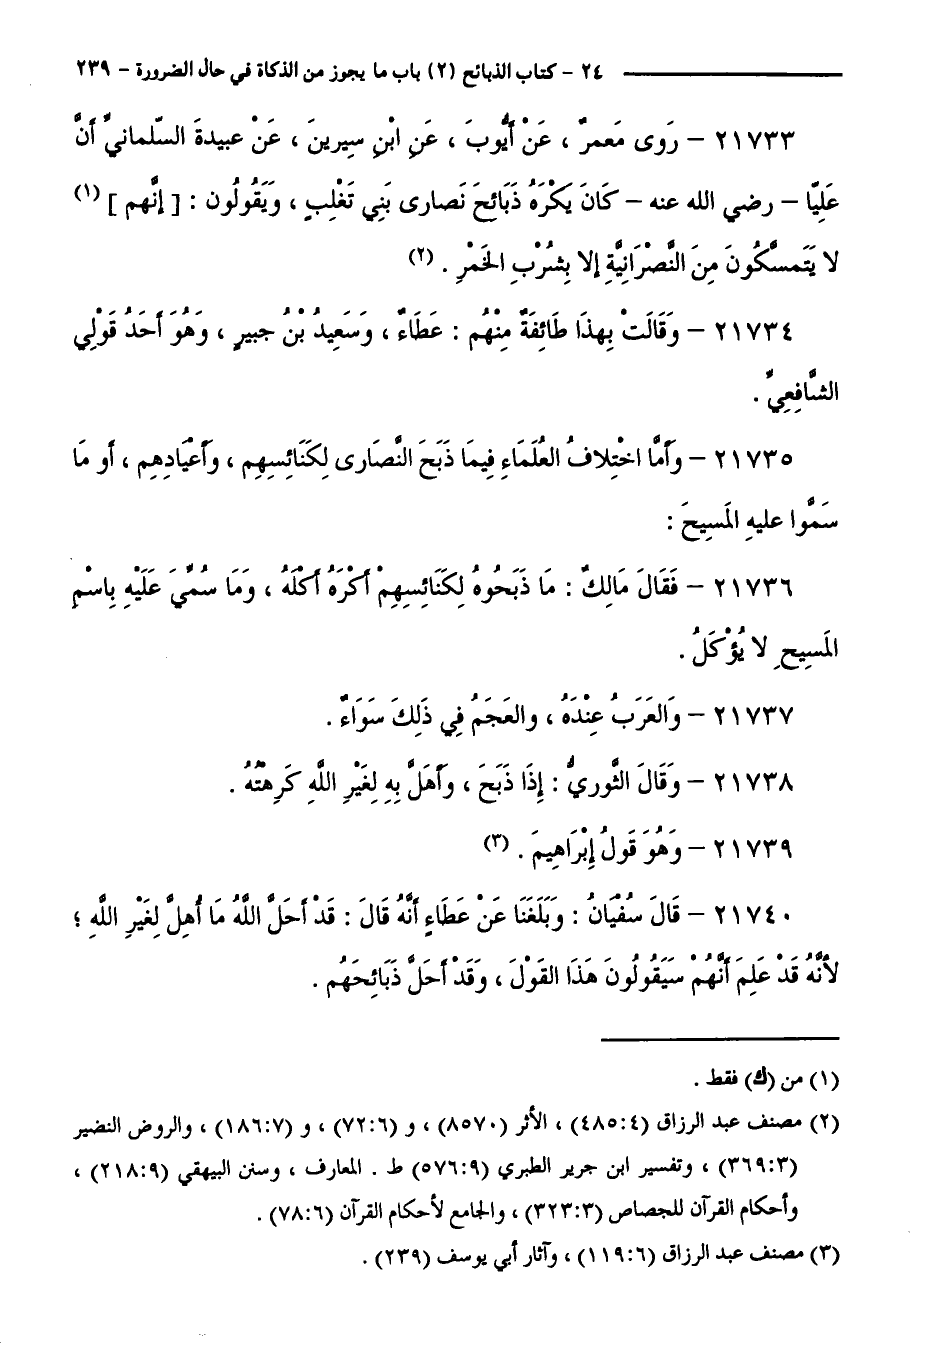 ٢٤ – كتاب الذبائح (٢) باب ما يجوز من الذكاة في حال الضرورة – ٢٣٩
٢١٧٣٣ – رَوى مَعمرٌ ، عَنْ أَيُّوبَ ، عَنِ ابْنِ سِيرِينَ ، عَنْ عبيدةَ السّلمانيِّ أَنَّ
عَلِيّا – رضي الله عنه – كَانَ يَكْرَهُ ذَبَائِحَ نَصارى بَنِي تَغْلِبٍ ، وَيَقُولُون : [ إنَّهم ] (١)
لا يَتَمسَّكُونَ مِنَ النَّصْرَانِيَّةِ إلا بِشُرْبِ الخَمْرِ . (٢)
٢١٧٣٤ – وَقَالَتْ بِهذَا طَائِفَةٌ مِنْهُم : عَطَاءٌ ، وَسَعِيدُ بْنُ جبيرٍ ، وَهُوَ أَحَدُ قَوْلي
الشَّافِعِيِّ .
٢١٧٣٥ – وَأَمَّا اخْتِلافُ العُلَمَاءِ فِيمَا ذَبَحَ النَّصَارى لِكَنَائِسِهِم ، وَأَعْيَادِهِم ، أو مَا
سَمَّوا عليهِ المَسِيحَ :
٢١٧٣٦ – فَقَالَ مَالِكٌ : مَا ذَبَحُوهُ لِكَنَائِسِهِمْ أَكْرَهُ أَكْلَهُ ، وَمَا سُمِّيَ عَلَيْهِ بِاسْمِ
المَسِيحِ لا يُؤْكَلُ .
٢١٧٣٧ – وَالعَرَبُ عِنْدَهُ ، والعَجَمُ فِي ذَلِكَ سَوَاءٌ .
٢١٧٣٨ – وَقَالَ الثَّوريُّ : إِذَا ذَبَحَ ، وأَهَلَّ بِهِ لِغَيْرِ اللَّهِ كَرِهْتُهُ .
٢١٧٣٩ – وَهُوَ قَولُ إِبْرَاهِيمَ . (٣)
٢١٧٤٠ – قَالَ سُفْيَانُ : وَبَلَغَنَا عَنْ عَطَاءٍ أَنَّهُ قَالَ : قَدْ أَحَلَّ اللَّهُ مَا أُهِلَّ لِغَيْرِ اللَّهِ ؛
لأنَّهُ قَدْ عَلِمَ أَنَّهُمْ سَيَقُولُونَ هَذَا القَوْلَ ، وَقَدْ أَحَلَّ ذَبَائِحَهُم .
(١) من (ك) فقط .
(٢) مصنف عبد الرزاق (٤٨٥:٤) ، الأثر (٨٥٧٠) ، و (٧٢:٦) ، و (١٨٦:٧) ، والروض النضير
(٣٦٩:٣) ، وتفسير ابن جرير الطبري (٥٧٦:٩) ط . المعارف ، وسنن البيهقي (٢١٨:٩) ،
وأحكام القرآن للجصاص (٣٢٣:٣) ، والجامع لأحكام القرآن (٧٨:٦) .
(٣) مصنف عبد الرزاق (١١٩:٦) ، وآثار أبي يوسف (٢٣٩) .